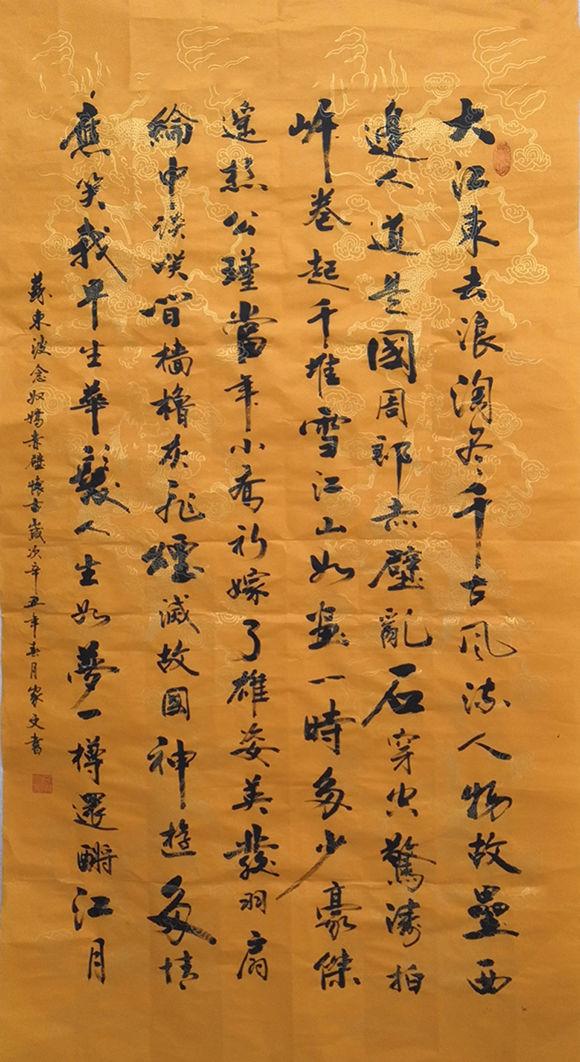 大江東去浪淘尽千古風流人物故壘西
邊人道是國周郎赤壁亂石穿空驚濤拍
岸卷起千堆雪江山如畫一時多少豪傑
遥想公瑾當年小喬初嫁了雄姿英發羽扇
綸中談笑間檣櫓灰飛煙滅故國神遊多情
應笑我早生華髮人生如夢一樽還酹江月
蘇東波念奴嬌赤壁懷古歲次辛丑年春月家文書